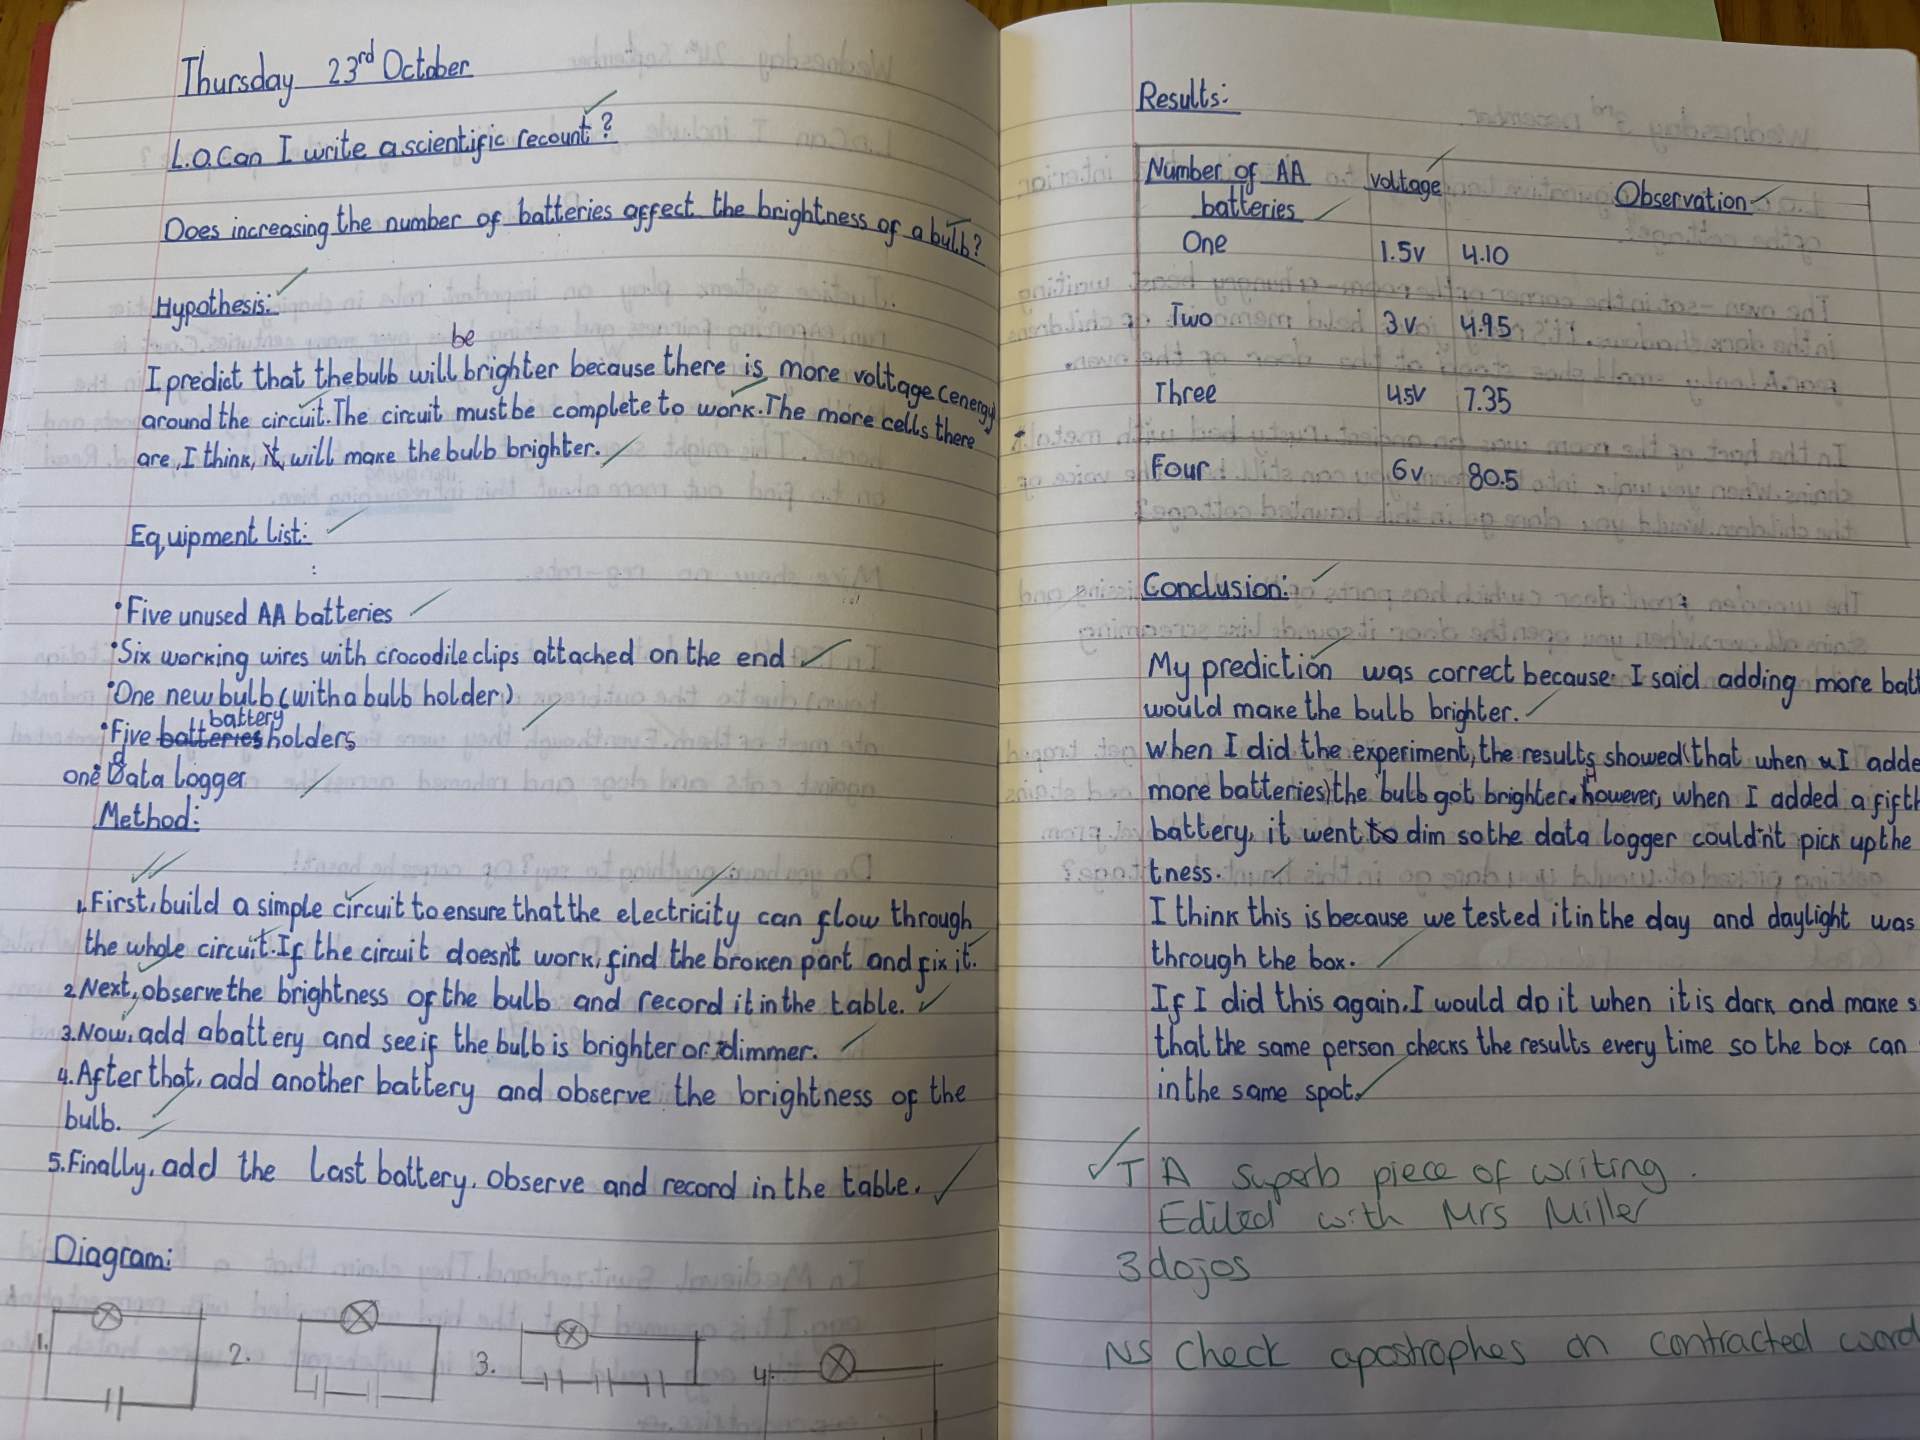 Thursday 23rd October
L.O.Can I write a scientific recount?
Does increasing the number of batteries affect the brightness of a bulb?
Hypothesis:
be
I predict that the bulb will brighter because there is more voltage (energy)
around the circuit. The circuit must be complete to work. The more cells there
are, I think, it, will make the bulb brighter.
Equipment List:
:
• Five unused AA batteries
• Six working wires with crocodile clips attached on the end
• One new bulb (with a bulb holder)
battery
• Five batteries holders
one Data logger
Method:
1. First, build a simple circuit to ensure that the electricity can flow through
the whole circuit. If the circuit doesn't work, find the broken part and fix it.
2. Next, observe the brightness of the bulb and record it in the table.
3. Now, add a battery and see if the bulb is brighter or dimmer.
4. After that, add another battery and observe the brightness of the
bulb.
5. Finally, add the last battery, observe and record in the table.
Diagram:
1. 2. 3. 4.
Results:
Number of AA batteries voltage Observation
One 1.5v 4.10
Two 3v 4.95
Three 4.5v 7.35
Four 6v 80.5
Conclusion:
My prediction was correct because I said adding more batt
would make the bulb brighter.
when I did the experiment, the results showed (that when I adde
more batteries) the bulb got brighter. However, when I added a fifth
battery, it went to dim so the data logger couldn't pick up the
tness.
I think this is because we tested it in the day and daylight was
through the box.
If I did this again, I would do it when it is dark and make s
that the same person checks the results every time so the box can
in the same spot.
T A superb piece of writing.
Edited with Mrs Miller
3 dojos
NS Check apostrophes on contracted word